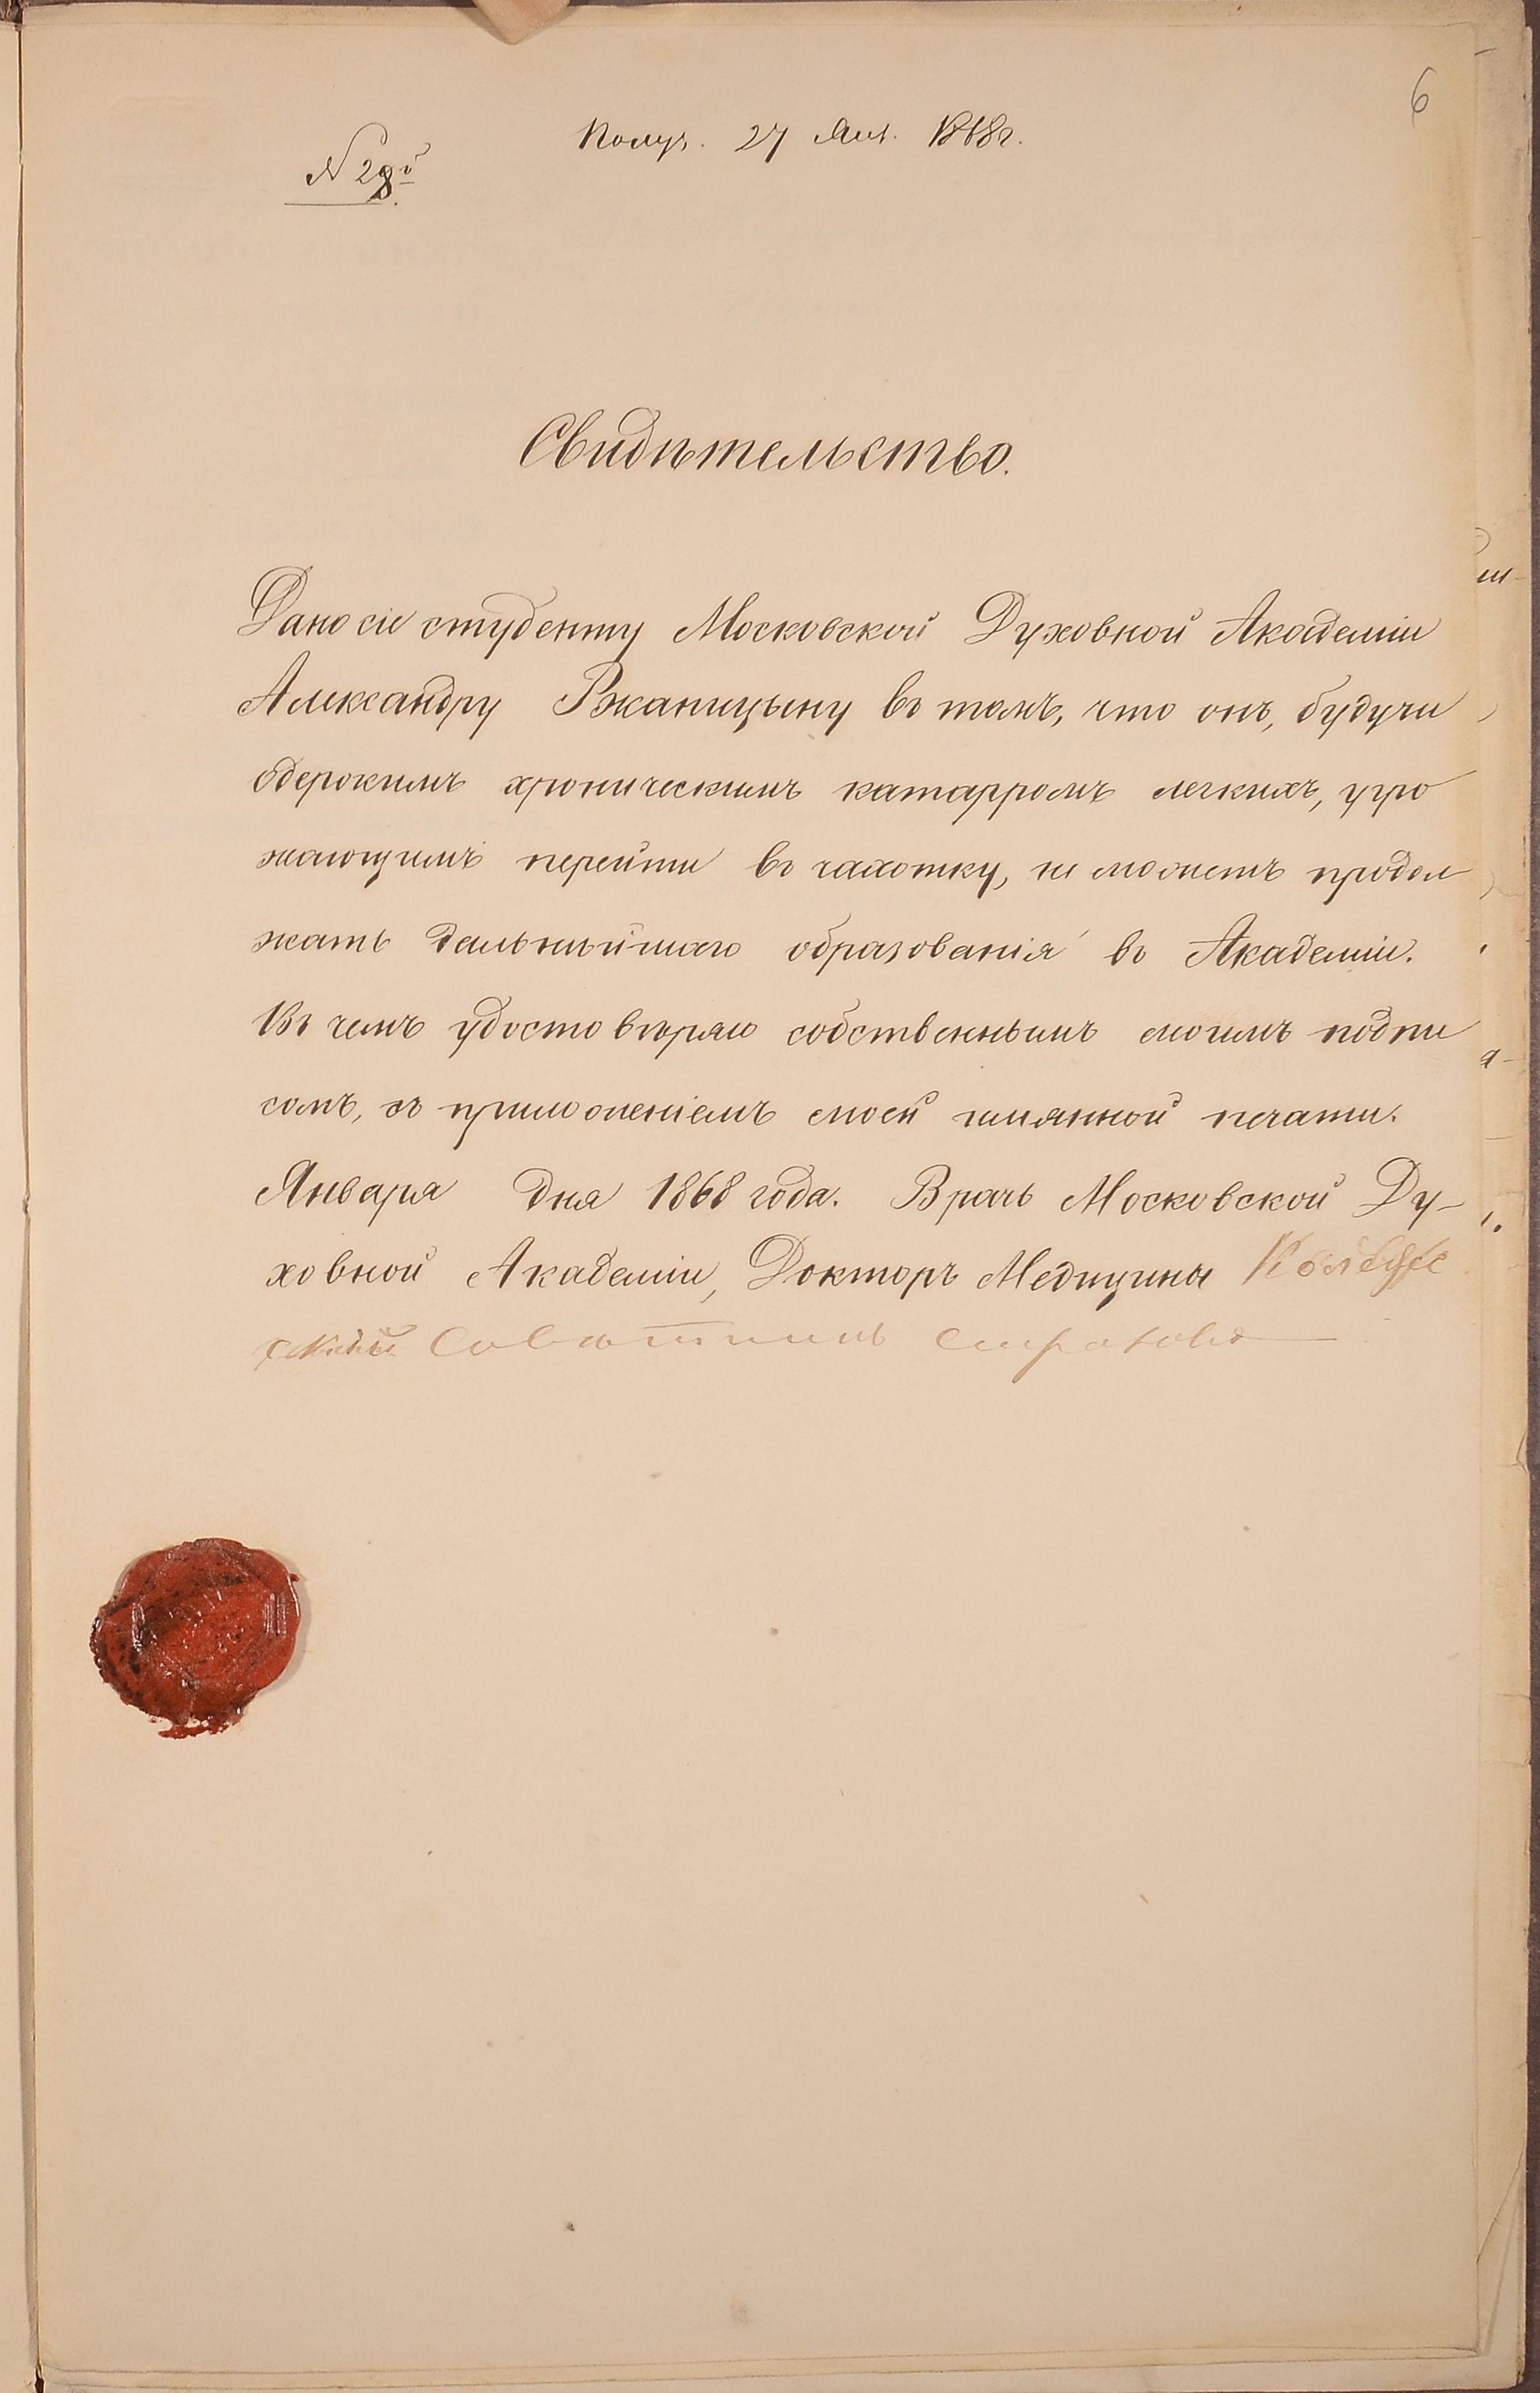 6
Получ. 27 Янв. 1868 г.
№ 28й
Свидѣтельство.
Дано сіе студенту Московской Духовной Академіи
Александру Ржаницыну въ томъ, что онъ, будучи
одержимъ хроническимъ катарромъ легкихъ, угро
жающимъ перейти въ чахотку, не можетъ продол
жать дальнѣйшаго образованія въ Академіи.
Въ чемъ удостовѣряю собственнымъ моимъ подпи
сомъ, съ приложеніемъ моей имянной печати.
Января дня 1868 года. Врачъ Московской Ду-
ховной Академіи, Докторъ Медицины Коллеж
скій Советникъ